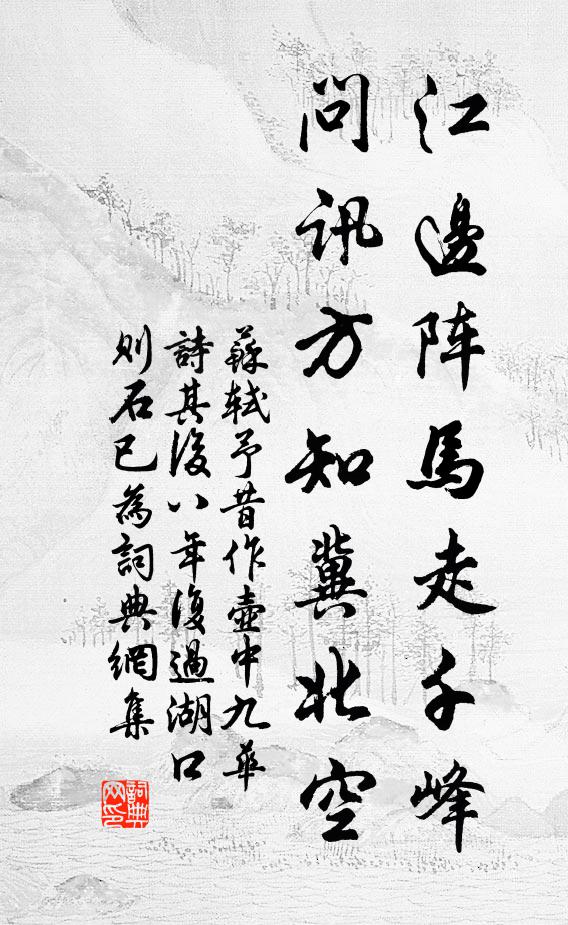 江邊阵馬走千峰
問訊方知冀北空
蘇軾予昔作壺中九華
詩其後八年復過湖口
則石已為詞典網集
詞典網印